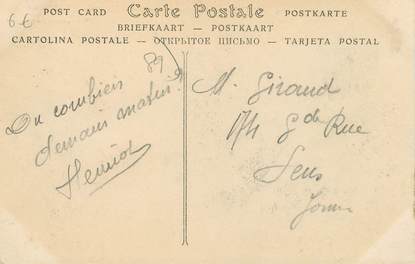 6 €
POST CARD Carte Postale POSTKARTE
BRIEFKAART — POSTKAART
CARTOLINA POSTALE — ОТКРЫТОЕ ПИСЬМО — TARJETA POSTAL
89
On combien
demain matin?
Henriot
M. Giraud
174 Gde Rue
Sens
Yonne